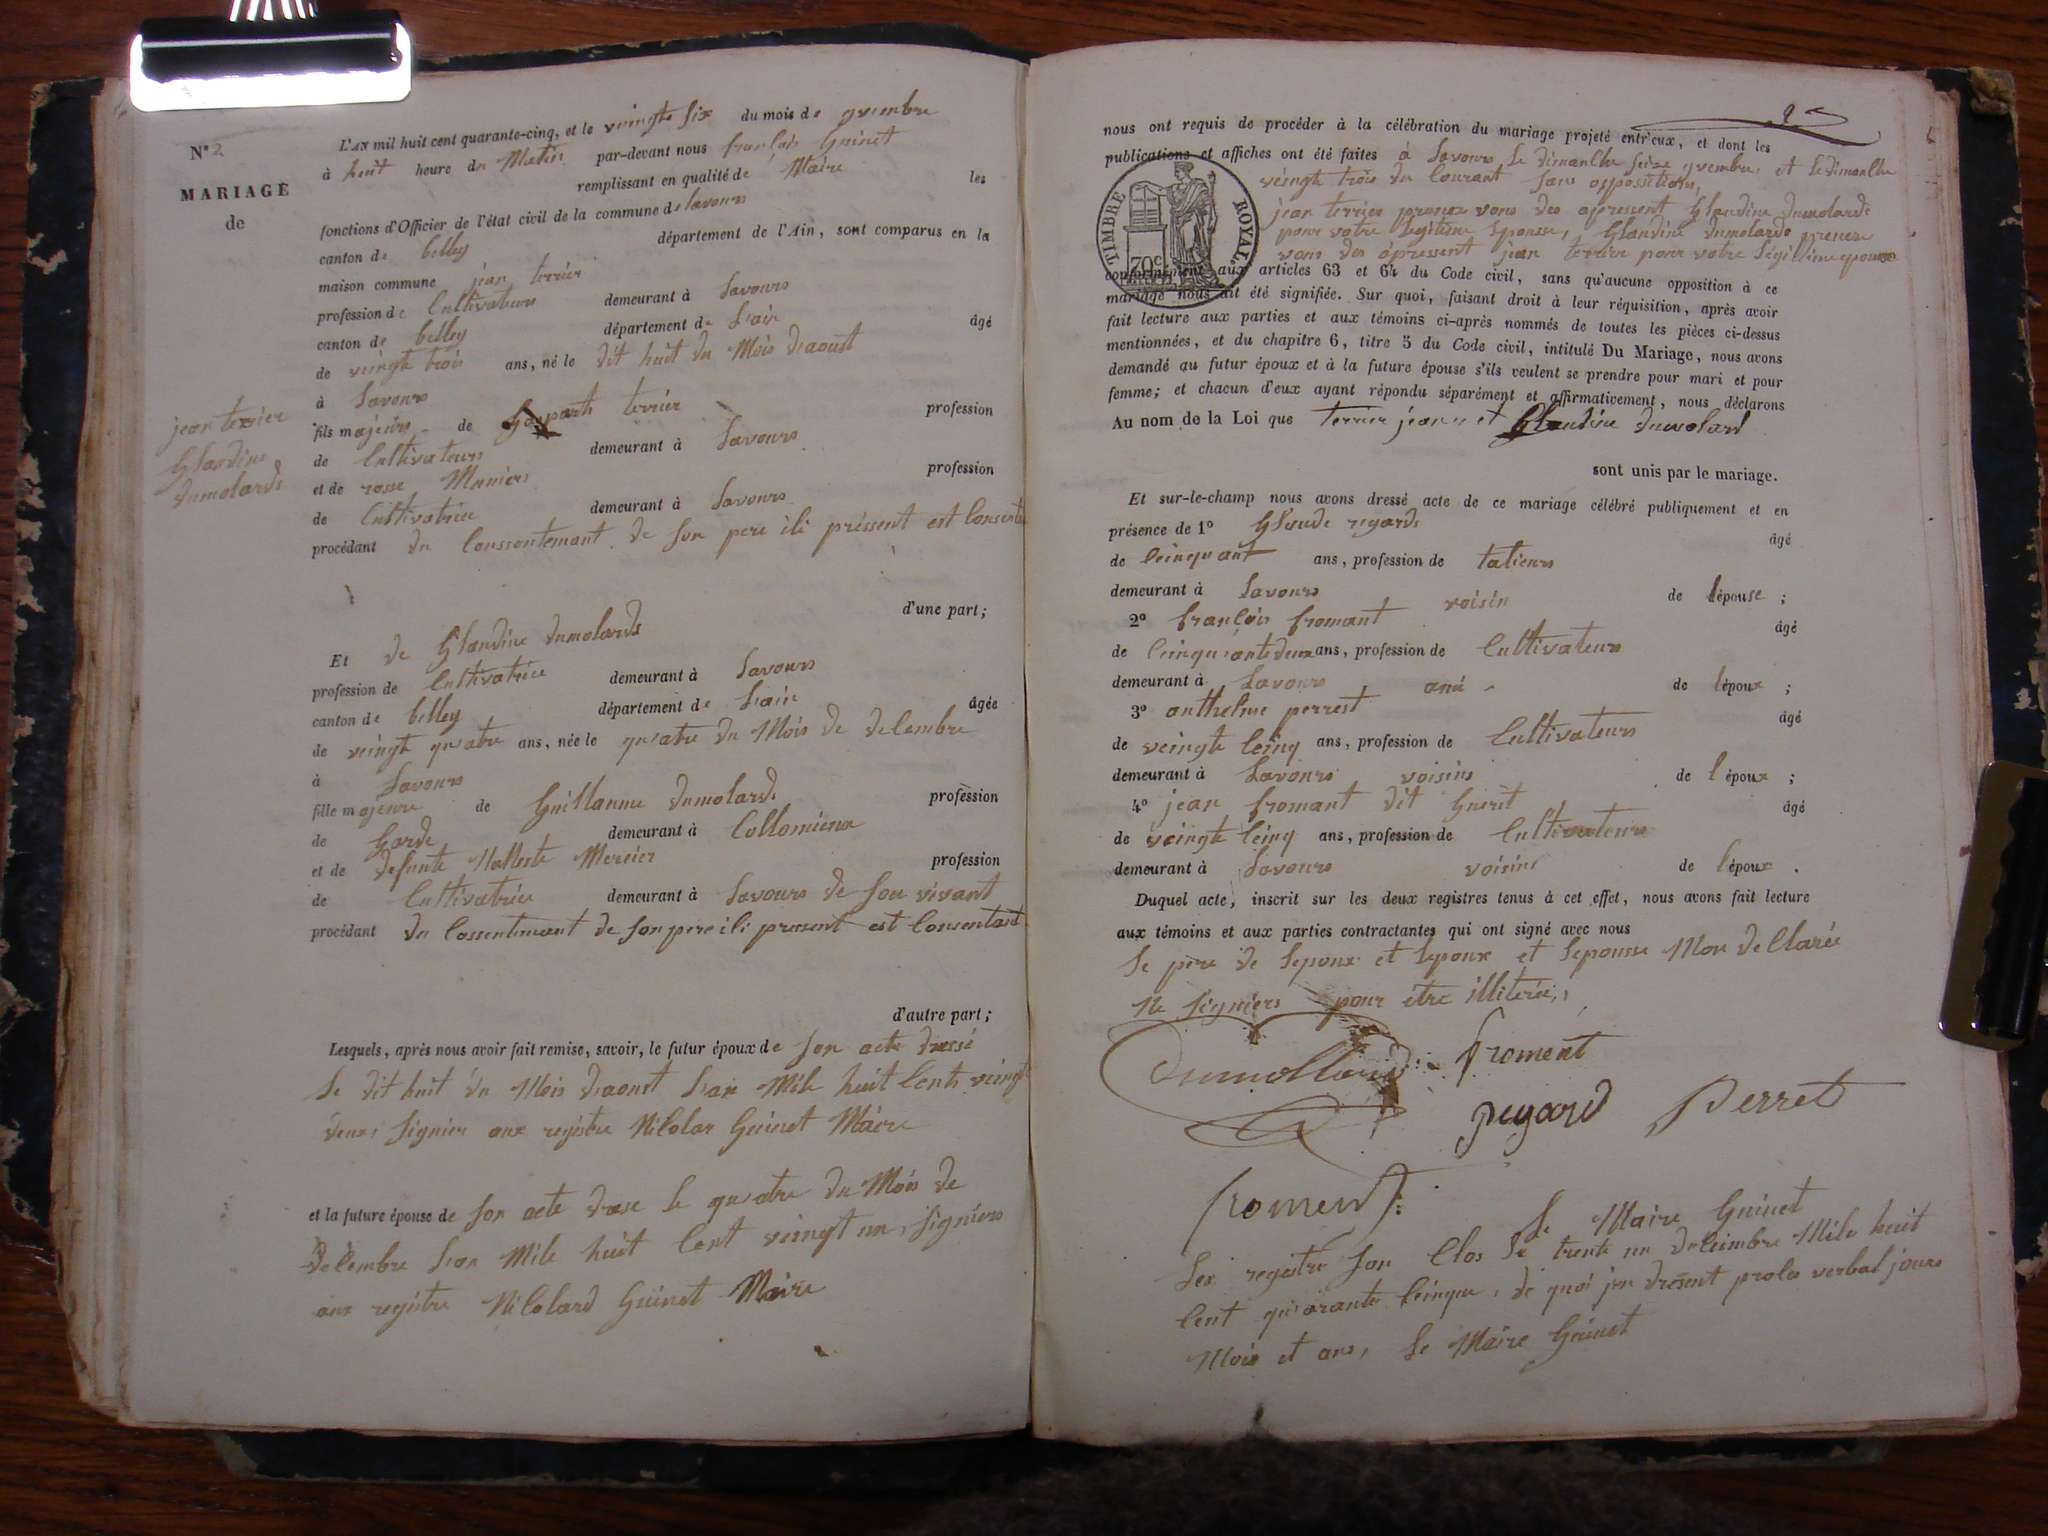 N° 2
MARIAGE
de
jean terrier
Glandine
dumolards
L'AN mil huit cent quarante-cinq, et le veingte six du mois de 9vembre
à huit heure du Matin par-devant nous françois Guinet
remplissant en qualité de Maire les
fonctions d'Officier de l'état civil de la commune de Lavours
canton de belley département de l'Ain, sont comparus en la
maison commune jean terrier
profession de Cultivateur demeurant à Lavours
canton de belley département de L'ain âgé
de veingte trois ans, né le dit huit du Mois d'aoust
à Lavours
fils majeurs de Gasparts terrier profession
de Cultivateurs demeurant à Lavours
et de rosse Muniers profession
de Cultivatrice demeurant à Lavours
procédant du Conssentemant de son pere ici préssent est Consenta
d'une part;
Et de Glandine dumolards
profession de Cultivatrice demeurant à Lavours
canton de belley département de L'ain âgée
de veingte quatre ans, née le quatre du Mois de decembre
à Lavours
fille majeure de Guillaume dumolards profession
de Garde demeurant à Collomieux
et de defunte Mercier profession
de Cultivatrice demeurant à Lavours de son vivant
procédant du Cossentimant de son pere ici present est Consentant
d'autre part;
Lesquels, après nous avoir fait remise, savoir, le futur époux de son acte dressé
Le dit huit du Mois d'aoust L'an Mile huit Cents veingt
deux, signier aux registre Nicolas Guinet Maire
et la future épouse de son acte drese le quatre du Mois de
Décembre L'an Mile huit Cent veingt un, signiers
aux registre Nicolard Guinet Maire
2
nous ont requis de procéder à la célébration du mariage projeté entr'eux, et dont les
publications et affiches ont été faites à Lavours Le dimanche seize 9vembre, et Le dimanche
veingte trois du Courant sans oppossition,
jean terrier prenez vous des apressent Glandine dumolards
pour votre Legitime Epousse, Glandine dumolards prenez
vous des àpressent jean terrier pour votre Légitime epoux
TIMBRE ROYAL
70c
conformément aux articles 63 et 64 du Code civil, sans qu'aucune opposition à ce
mariage nous ait été signifiée. Sur quoi, faisant droit à leur réquisition, après avoir
fait lecture aux parties et aux témoins ci-après nommés de toutes les pièces ci-dessus
mentionnées, et du chapitre 6, titre 5 du Code civil, intitulé Du Mariage, nous avons
demandé au futur époux et à la future épouse s'ils veulent se prendre pour mari et pour
femme; et chacun d'eux ayant répondu séparément et affirmativement, nous déclarons
Au nom de la Loi que terrier jean et Glandine dumolard
sont unis par le mariage.
Et sur-le-champ nous avons dressé acte de ce mariage célébré publiquement et en
présence de 1° Glaude regards âgé
de Ceinquant ans, profession de talieurs
demeurant à Lavours voisin de lépouse ;
2° françois fromant âgé
de Ceinquante deux ans, profession de Cultivateurs
demeurant à Lavours ami de lépoux ;
3° anthelme perrest âgé
de veingte Ceinq ans, profession de Cultivateurs
demeurant à Lavours voisins de l époux ;
4° jean fromant dit Guerit âgé
de veingte Ceinq ans, profession de Cultivateurs
demeurant à Lavours voisins de lépoux .
Duquel acte, inscrit sur les deux registres tenus à cet effet, nous avons fait lecture
aux témoins et aux parties contractantes qui ont signé avec nous
Le pere de Lepoux et Lepoux et Lepousse Mon de Clarée
Ne signiers pour étre illiterée,
Dumollard froment
regard Perret
froment
Le Maire Guinet
Les registre son Clos Le trente un deceimbre Mile huit
Cent quarante Ceinque, de quoi jen dresent proces verbal jours
Mois et ans, Le Maire Guinet